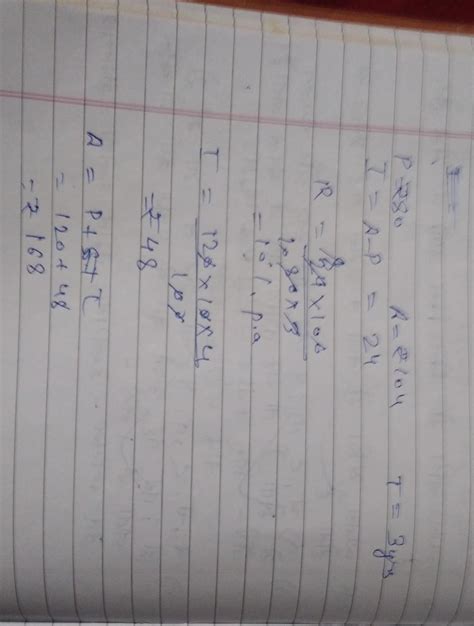 P=₹80 A=₹104 T=3yrs
I = A-P = 24
R = 24×100
80×3
=10% p.a
I = 120×10×4
100
=₹48
A = P+I
= 120+48
=₹168